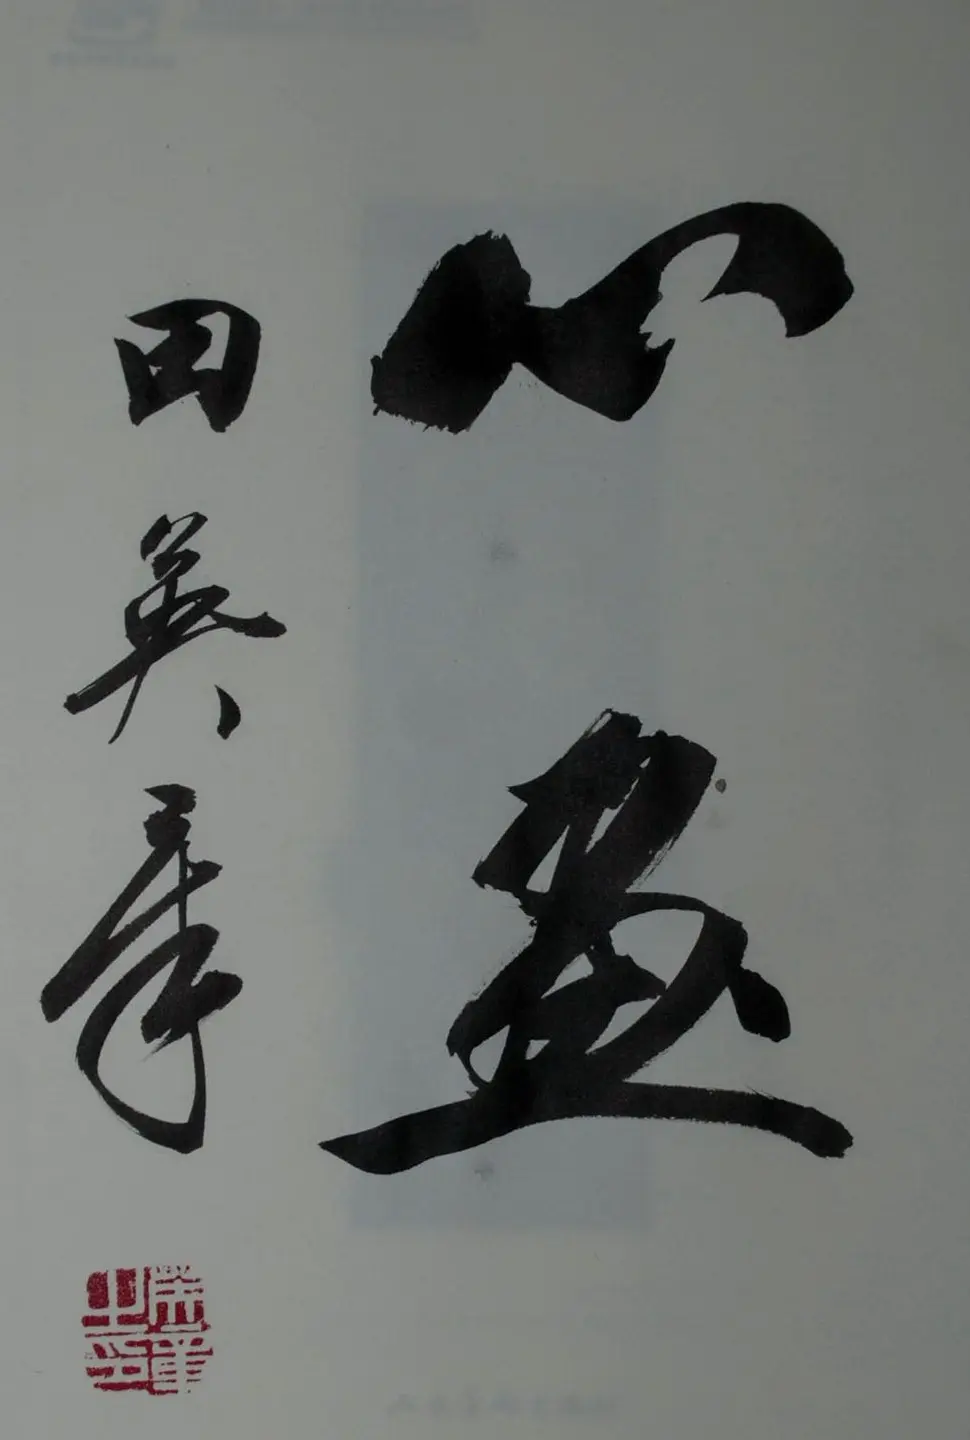 心畫
田英章